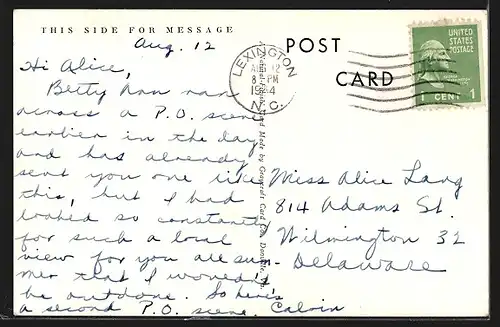 THIS SIDE FOR MESSAGE
Aug. 12
Hi Alice,
Betty Ann ran
across a P.O. scene
earlier in the day
and has already
sent you one like
this, but I had
looked so constantly
for such a local
view for you all sum-
mer that I wouldn't
be outdone. So here's
a second P.O. scene. Calvin
POST
CARD
LEXINGTON
AUG 12
PM
N.C.
UNITED
STATES
POSTAGE
1 CENT 1
Miss Alice Lang
814 Adams St.
Wilmington 32
Delaware
Made by Graycraft Card Co., Danville, Va.